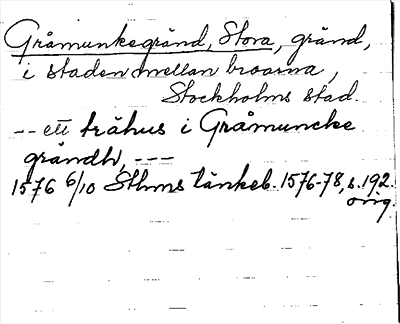 Gråmunkegränd, Stora, gränd,
i staden mellan broarna,
Stockholms stad.
-- ett trähus i Gråmuncke
grändh, ---
1576 6/10 Sthms tänkeb. 1576-78, s. 192.
orig.